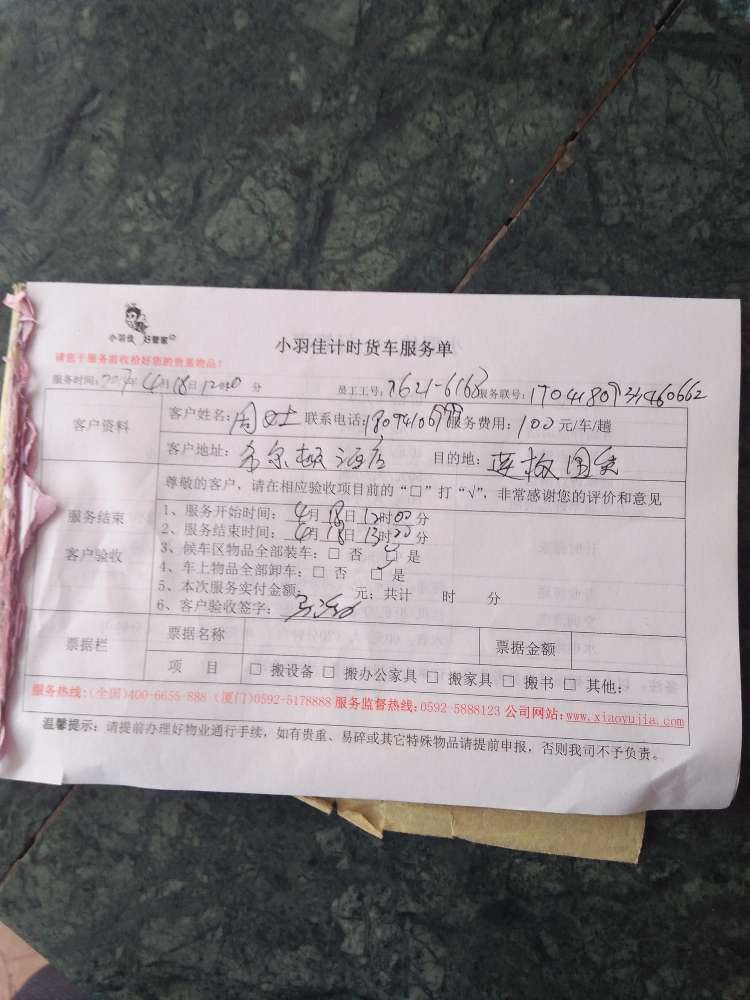 小羽佳 好管家
小羽佳计时货车服务单
请您于服务前收拾好您的贵重物品！
服务时间：2017年4月18日12时00分 员工工号：7621-6168 服务联号：
客户资料
客户姓名：周女士 联系电话： 服务费用：100元/车/趟
客户地址：希尔顿酒店 目的地：
服务结束
客户验收
尊敬的客户，请在相应验收项目前的“□”打“√”，非常感谢您的评价和意见
1、服务开始时间：4月18日12时00分
2、服务结束时间：4月18日13时20分
3、候车区物品全部装车：□ 否 □ 是
4、车上物品全部卸车：□ 否 □ 是
5、本次服务实付金额： 元；共计 时 分
6、客户验收签字：
票据栏
票据名称 票据金额
项 目 □ 搬设备 □ 搬办公家具 □ 搬家具 □ 搬书 □ 其他：
服务热线：(全国)400-6655-888 (厦门)0592-5178888 服务监督热线：0592-5888123 公司网站：www.xiaoyujia.com
温馨提示：请提前办理好物业通行手续，如有贵重、易碎或其它特殊物品请提前申报，否则我司不予负责。